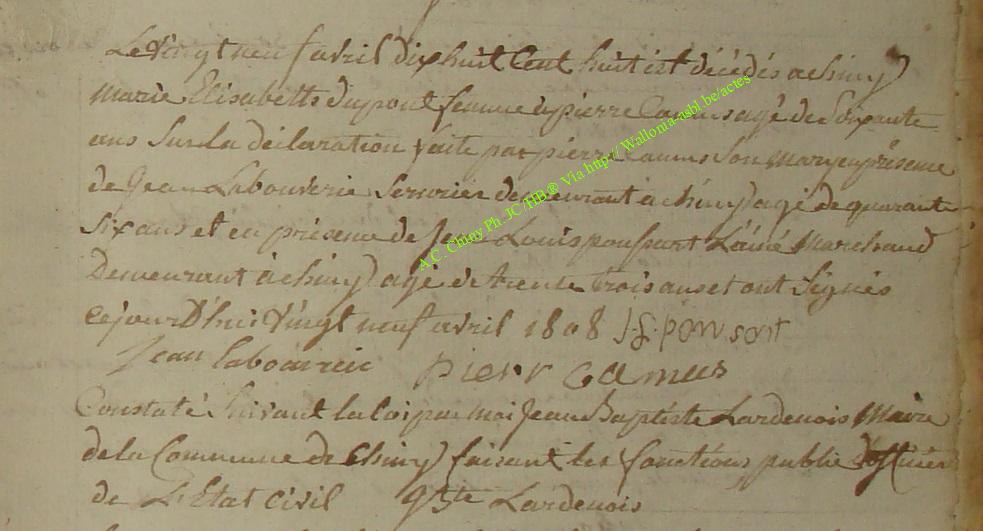 Le Vingt neuf avril dix huit Cent huit est décédés a chiny
Marie Elisabette dupont femme de pierre Camus agé de Soixante
ans Sur La déclaration faite par pierre Camus Son Mary en présence
de Jean Labouverie Serrurier demeurant a chiny agé de quarante
Six ans et en présence de Jean Louis ponssart L'ainé Marchand
Demeurant à chiny agé de trente trois ans et ont Signés
cejourD'hui Vingt neuf avril 1808 J. L. ponsart
Jean labouverie pierr camus
Constaté Suivant la loi par moi Jean Baptiste Lardenois Maire
de la Commune de Chiny faisant les fonctions public d'officier
de L'Etat Civil Lardenois
A.C. Chiny Ph. JC HB® Via http// Wallonia-asbl.be/actes